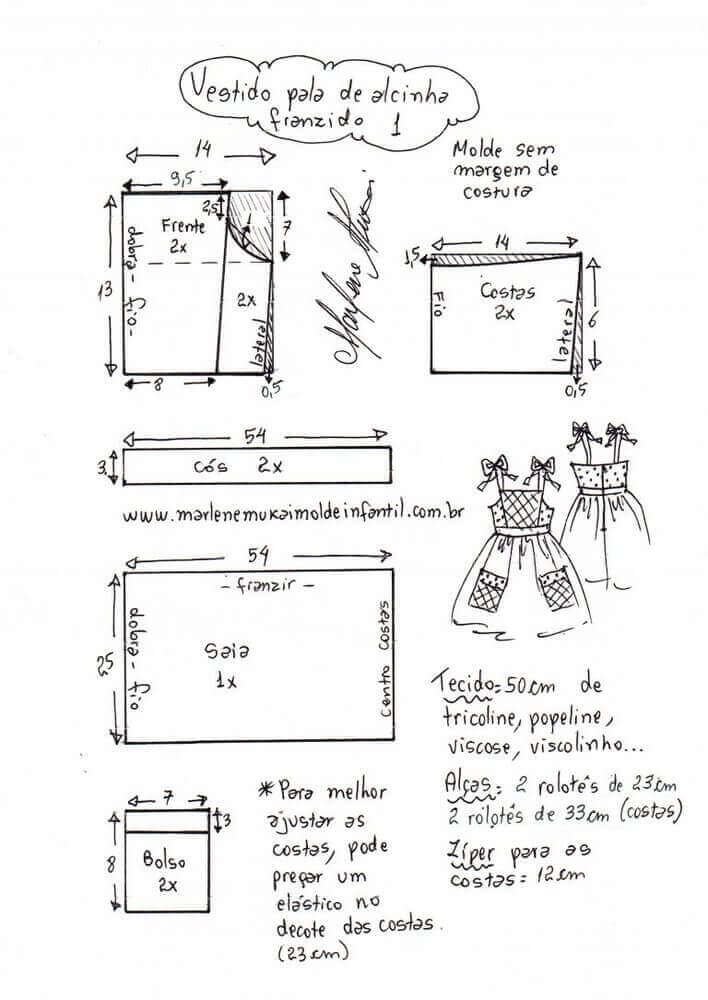 Vestido pala de alcinha
franzido 1
Molde sem
margem de
costura
14
9,5
2,5
7
1
Frente
2x
2x
13
dobra - fio -
lateral
8
0,5
Marlene Mukai
14
1,5
Costas
2x
Fio
lateral
6
0,5
54
3
cós 2x
www.marlenemukaimoldeinfantil.com.br
54
- franzir -
25
dobra - fio
Saia
1x
Centro Costas
Tecido: 50cm de
tricoline, popeline,
viscose, viscolinho...
Alças: 2 rolotês de 23cm
2 rolotês de 33cm (costas)
Zíper para as
costas = 12cm
7
3
8
Bolso
2x
* Para melhor
ajustar as
costas, pode
pregar um
elástico no
decote das costas.
(23cm)